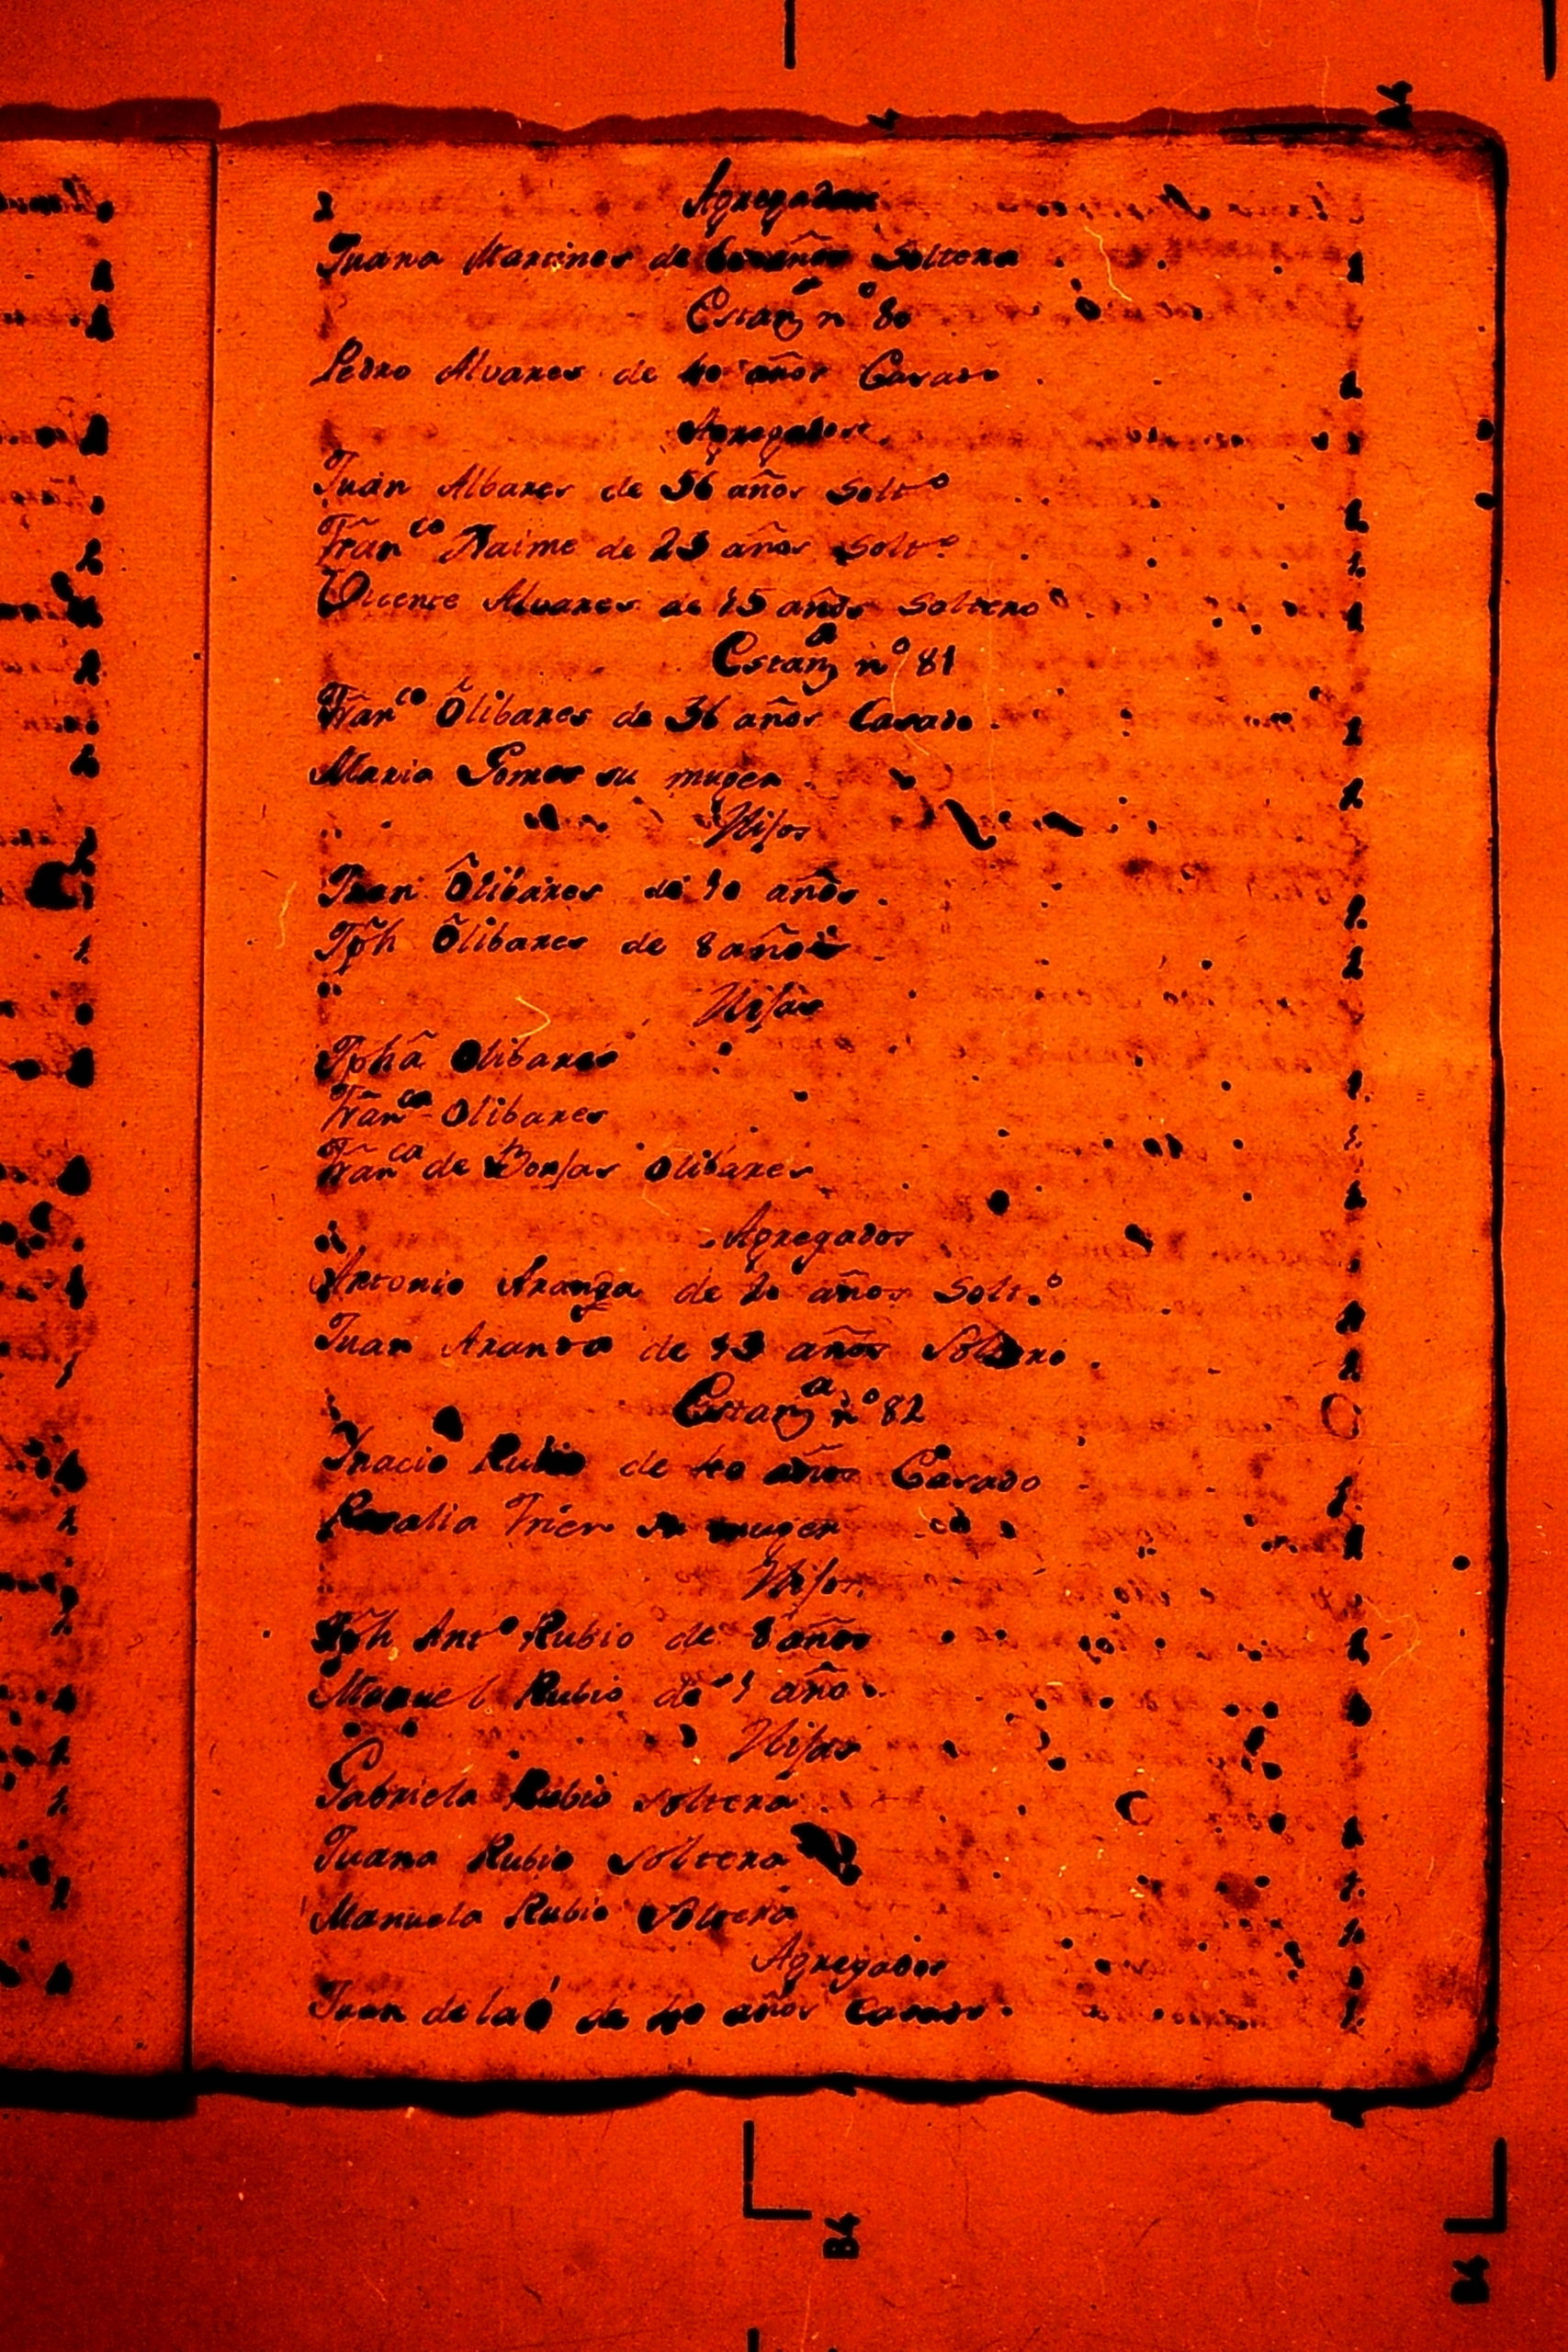 Agregados
Juana Martines de años Soltera
Estan.ª nº 80
Pedro Alvares de 40 años Casado
Agregados
Juan Albares de 56 años solt.º
Fran.co Jaime de 23 años solt.º
Vicente Alvares de 15 años soltero
Estan.ª nº 81
Fran.co Olibares de 36 años Casado
Maria Gomes su muger
Hijos
Juan Olibares de 10 años
Jph Olibares de 8 años
Hijas
Jpha Olibares
Fran.ca Olibares
Fran.ca de Borjas Olibares
Agregados
Antonio Aranda de 20 años Solt.º
Juan Aranda de 13 años Soltero
Estan.ª nº 82
Inacio Rubio de 40 años Casado
Rosalia su muger
Hijos
Jph Ant.º Rubio de 8 años
Manuel Rubio de 1 año
Hijas
Gabriela Rubio soltera
Juana Rubio soltera
Manuela Rubio soltera
Agregados
Juan de la de 40 años Casado
B4
B4